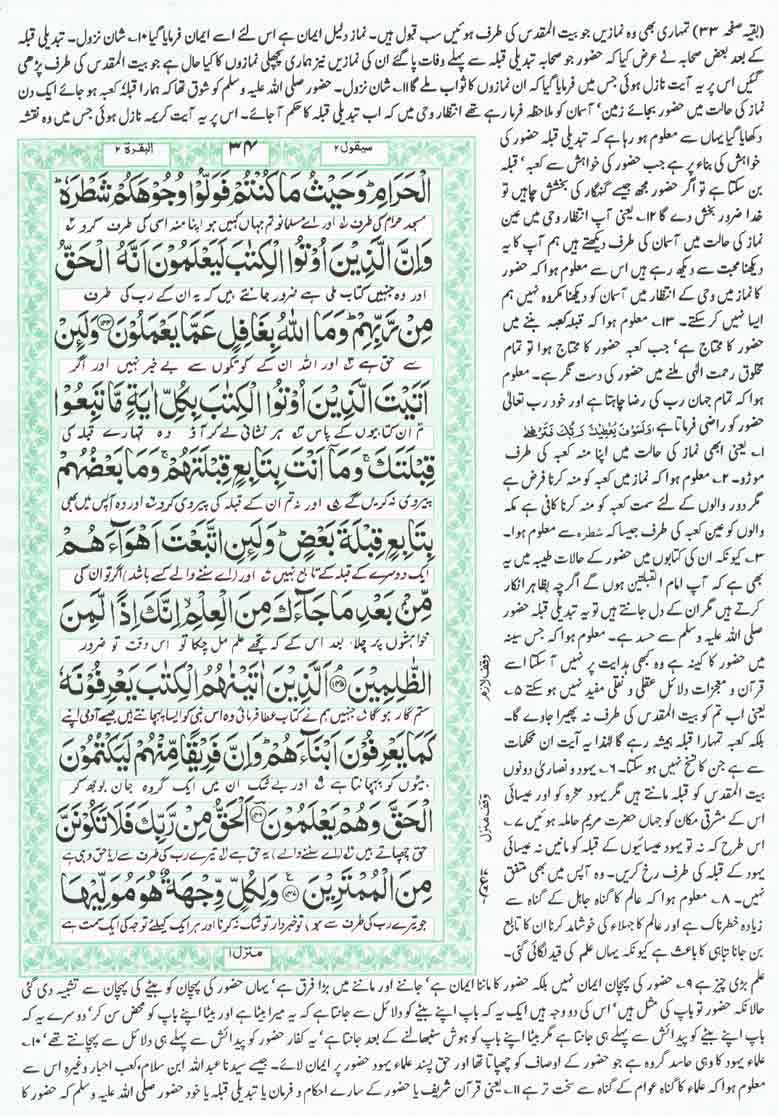 (بقیہ صفحہ ۳۳) تمہاری بھی وہ نمازیں جو بیت المقدس کی طرف ہوئیں سب قبول ہیں۔ نماز دلیل ایمان ہے اس لئے اسے ایمان فرمایا گیا ۱۰۔ شان نزول۔ تبدیلی قبلہ
کے بعد بعض صحابہ نے عرض کیا کہ حضور جو صحابہ تبدیلی قبلہ سے پہلے وفات پا گئے ان کی نمازیں نیز ہماری پچھلی نمازوں کا کیا حال ہے جو بیت المقدس کی طرف پڑھی
گئیں اس پر یہ آیت نازل ہوئی جس میں فرمایا گیا کہ ان نمازوں کا ثواب ملے گا ۱۱۔ شان نزول۔ حضور صلی اللہ علیہ وسلم کو شوق تھا کہ ہمارا قبلہ کعبہ ہو جائے ایک دن
نماز کی حالت میں حضور بجائے زمین' آسمان کو ملاحظہ فرما رہے تھے انتظار وحی میں کہ اب تبدیلی قبلہ کا حکم آ جائے۔ اس پر یہ آیت کریمہ نازل ہوئی جس میں وہ نقشہ
دکھایا گیا یہاں سے معلوم ہو رہا ہے کہ تبدیلی قبلہ حضور کی
خواہش کی بناء پر ہے جب حضور کی خواہش سے کعبہ' قبلہ
بن سکتا ہے تو اگر حضور مجھ جیسے گنہگار کی بخشش چاہیں تو
خدا ضرور بخش دے گا ۱۲۔ یعنی آپ انتظار وحی میں عین
نماز کی حالت میں آسمان کی طرف دیکھتے ہیں ہم آپ کا یہ
دیکھنا محبت سے دیکھ رہے ہیں اس سے معلوم ہوا کہ حضور
کا نماز میں وحی کے انتظار میں آسمان کو دیکھنا مکروہ نہیں ہم
ایسا نہیں کر سکتے۔ ۱۳۔ معلوم ہوا کہ قبلہ کعبہ بننے میں
حضور کا محتاج ہے' جب کعبہ حضور کا محتاج ہوا تو تمام
مخلوق رحمت الٰہی ملنے میں حضور کی دست نگر ہے۔ معلوم
ہوا کہ تمام جہان رب کی رضا چاہتا ہے اور خود رب تعالیٰ
حضور کو راضی فرماتا ہے وَلَسَوْفَ يُعْطِيكَ رَبُّكَ فَتَرْضٰى
۱۔ یعنی ابھی نماز کی حالت میں اپنا منہ کعبہ کی طرف
موڑو۔ ۲۔ معلوم ہوا کہ نماز میں کعبہ کو منہ کرنا فرض ہے
مگر دور والوں کے لئے سمت کعبہ کو منہ کرنا کافی ہے مکہ
والوں کو عین کعبہ کی طرف جیسا کہ شَطْرَہ سے معلوم ہوا۔
۳۔ کیونکہ ان کی کتابوں میں حضور کے حالات طیبہ میں یہ
بھی ہے کہ آپ امام القبلتین ہوں گے اگرچہ بظاہر انکار
کرتے ہیں مگر ان کے دل جانتے ہیں تو یہ تبدیلی قبلہ حضور
صلی اللہ علیہ وسلم سے حسد ہے۔ معلوم ہوا کہ جس سینہ
میں حضور کا کینہ ہے وہ کبھی ہدایت پر نہیں آ سکتا اسے
قرآن و معجزات دلائل عقلی و نقلی مفید نہیں ہو سکتے ۵۔
یعنی اب تم کو بیت المقدس کی طرف نہ پھیرا جاوے گا۔
بلکہ کعبہ تمہارا قبلہ ہمیشہ رہے گا لہٰذا یہ آیت ان محکمات
سے ہے جن کا نسخ نہیں ہو سکتا۔ ۶۔ یہود و نصاریٰ دونوں
بیت المقدس کو قبلہ مانتے ہیں مگر یہود صخرہ کو اور عیسائی
اس کے مشرقی مکان کو جہاں حضرت مریم حاملہ ہوئیں ۷۔
اس طرح کہ نہ تو یہود عیسائیوں کے قبلہ کو مانیں نہ عیسائی
یہود کے قبلہ کی طرف رخ کریں۔ وہ آپس میں بھی متفق
نہیں۔ ۸۔ معلوم ہوا کہ عالم کا گناہ جاہل کے گناہ سے
زیادہ خطرناک ہے اور عالم کا جہلاء کی خوشامد کرنا ان کا تابع
بن جانا تباہی کا باعث ہے کیونکہ یہاں علم کی قید لگائی گئی۔
سیقول ۲
۳۴
البقرۃ ۲
الْحَرَامِ ؕ وَحَيْثُ مَا كُنْتُمْ فَوَلُّوْا وُجُوْهَكُمْ شَطْرَهٗ ؕ
مسجد حرام کی طرف اور اے مسلمانو تم جہاں کہیں ہو اپنا منہ اسی کی طرف کرو
وَاِنَّ الَّذِيْنَ اُوْتُوا الْكِتٰبَ لَيَعْلَمُوْنَ اَنَّهُ الْحَقُّ
اور وہ جنہیں کتاب ملی ہے ضرور جانتے ہیں کہ یہ ان کے رب کی طرف
مِنْ رَّبِّهِمْ ؕ وَمَا اللّٰهُ بِغَافِلٍ عَمَّا يَعْمَلُوْنَ ۝۱۴۴ وَلَئِنْ
سے حق ہے اور اللہ ان کے کوتکوں سے بے خبر نہیں اور اگر
اَتَيْتَ الَّذِيْنَ اُوْتُوا الْكِتٰبَ بِكُلِّ اٰيَةٍ مَّا تَبِعُوْا
تم ان کتابیوں کے پاس ہر نشانی لے کر آؤ وہ تمہارے قبلہ کی
قِبْلَتَكَ ۚ وَمَاۤ اَنْتَ بِتَابِعٍ قِبْلَتَهُمْ ۚ وَمَا بَعْضُهُمْ
پیروی نہ کریں گے اور نہ تم ان کے قبلہ کی پیروی کرو اور وہ آپس میں بھی
بِتَابِعٍ قِبْلَةَ بَعْضٍ ؕ وَلَئِنِ اتَّبَعْتَ اَهْوَآءَهُمْ
ایک دوسرے کے قبلہ کے تابع نہیں اور (اے سننے والے کسے باشد) اگر تو ان کی
مِّنْۢ بَعْدِ مَا جَآءَكَ مِنَ الْعِلْمِ ۙ اِنَّكَ اِذًا لَّمِنَ
خواہشوں پر چلا بعد اس کے کہ تجھے علم مل چکا تو اس وقت تو ضرور
الظّٰلِمِيْنَ ۝۱۴۵ اَلَّذِيْنَ اٰتَيْنٰهُمُ الْكِتٰبَ يَعْرِفُوْنَهٗ
ستم گار ہو گا جنہیں ہم نے کتاب عطا فرمائی وہ اس نبی کو ایسا پہچانتے ہیں جیسے آدمی اپنے
كَمَا يَعْرِفُوْنَ اَبْنَآءَهُمْ ؕ وَاِنَّ فَرِيْقًا مِّنْهُمْ لَيَكْتُمُوْنَ
بیٹوں کو پہچانتا ہے اور بے شک ان میں ایک گروہ جان بوجھ کر
الْحَقَّ وَهُمْ يَعْلَمُوْنَ ۝۱۴۶ اَلْحَقُّ مِنْ رَّبِّكَ فَلَا تَكُوْنَنَّ
حق چھپاتے ہیں (اے سننے والے) یہ حق ہے تیرے رب کی طرف سے (یا حق وہی ہے
مِنَ الْمُمْتَرِيْنَ ۝۱۴۷ وَلِكُلٍّ وِّجْهَةٌ هُوَ مُوَلِّيْهَا
جو تیرے رب کی طرف سے ہو) تو خبردار تو شک نہ کرنا اور ہر ایک کیلئے توجہ کی ایک سمت ہے
منزل ۱
وقف لازم
وقف منزل
علم بڑی چیز ہے ۹۔ حضور کی پہچان ایمان نہیں بلکہ حضور کا ماننا ایمان ہے' جاننے اور ماننے میں بڑا فرق ہے' یہاں حضور کی پہچان کو بیٹے کی پہچان سے تشبیہ دی گئی
حالانکہ حضور تو باپ کی مثل ہیں' اس کی دو وجہ ہیں ایک یہ کہ باپ اپنے بیٹے کو دلائل سے جانتا ہے کہ یہ میرا بیٹا ہے اور بیٹا اپنے باپ کو محض سن کر' دوسرے یہ کہ
باپ اپنے بیٹے کو پیدائش سے پہلے ہی جانتا ہے مگر بیٹا اپنے باپ کو ہوش سنبھالنے کے بعد جانتا ہے' یہ کفار حضور کو پیدائش سے پہلے ہی دلائل سے پہچانتے تھے' ۱۰۔
علماء یہود کا وہی حاسد گروہ ہے جو حضور کے اوصاف کو چھپاتا تھا اور حق پسند علماء یہود حضور پر ایمان لائے۔ جیسے سیدنا عبداللہ ابن سلام، کعب احبار وغیرہ اس سے
معلوم ہوا کہ علماء کا گناہ عوام کے گناہ سے سخت تر ہے ۱۱۔ یعنی قرآن شریف یا حضور کے سارے احکام و فرمان یا تبدیلی قبلہ یا خود حضور صلی اللہ علیہ وسلم کہ حضور کا